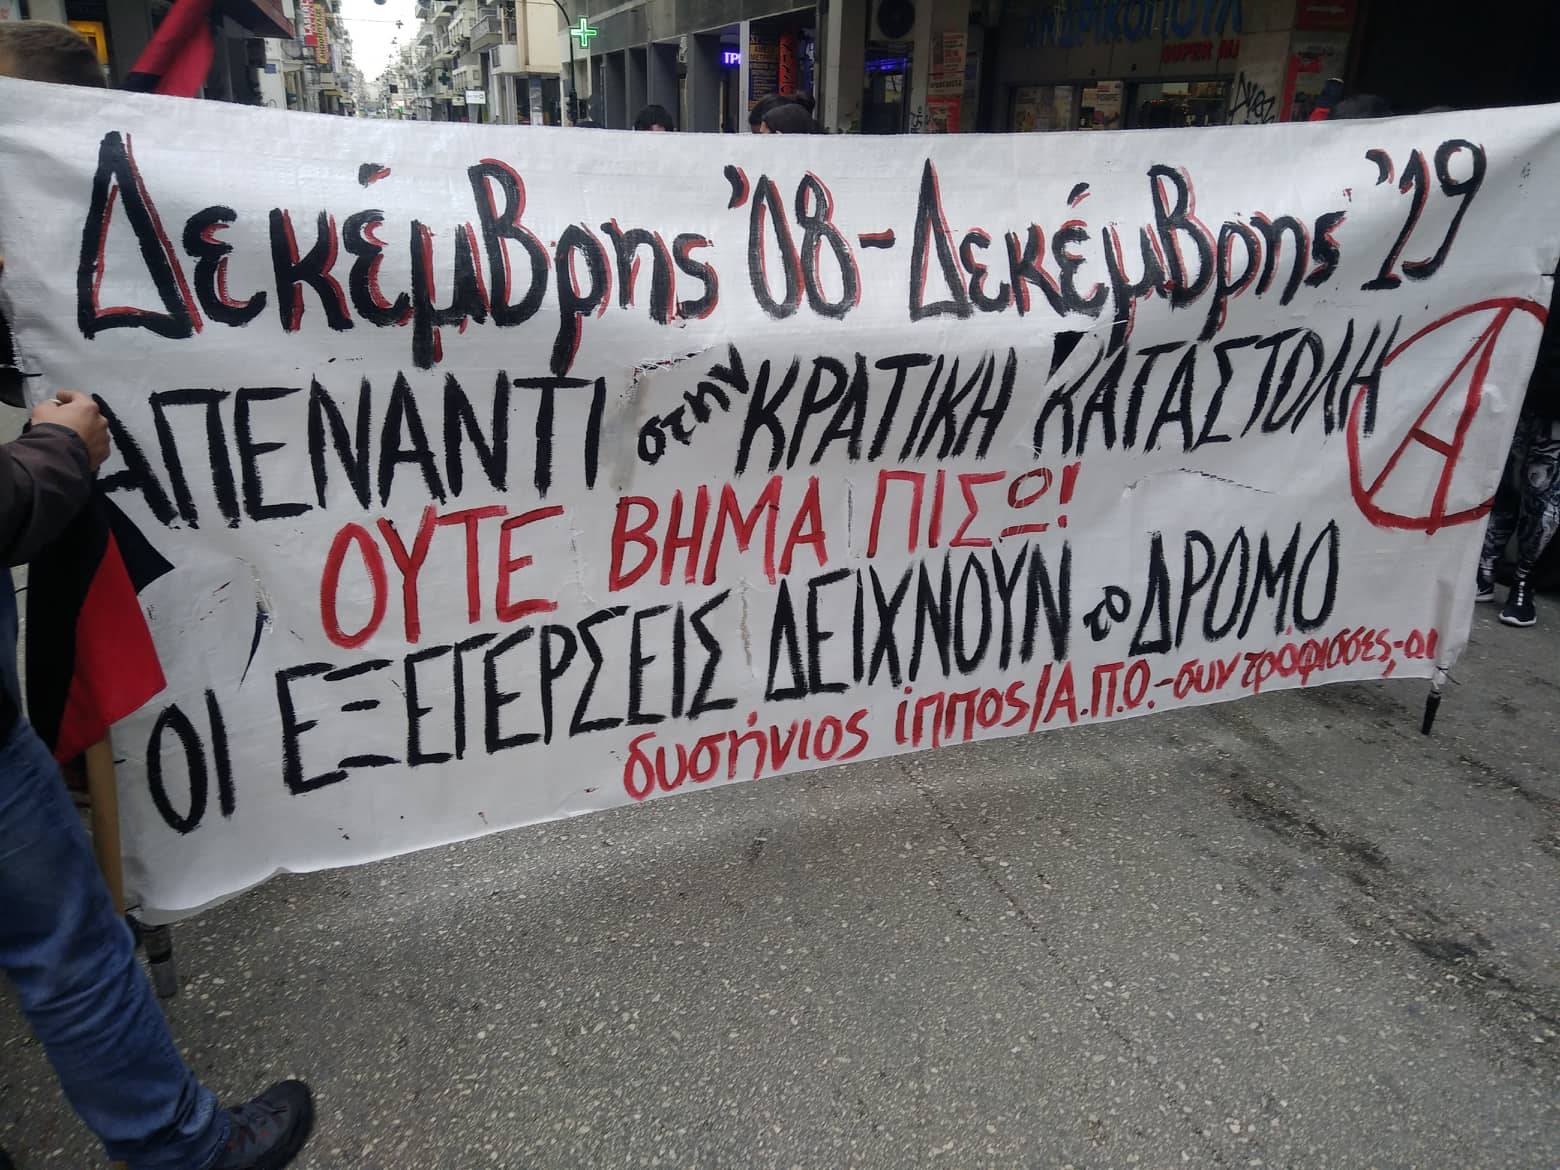 ΤΡ
ΑΝΔΡΙΚΟΠΟΥΛ
SUPER MA
Δεκέμβρης '08-Δεκέμβρης '19
ΑΠΕΝΑΝΤΙ στην ΚΡΑΤΙΚΗ ΚΑΤΑΣΤΟΛΗ
ΟΥΤΕ ΒΗΜΑ ΠΙΣΩ!
ΟΙ ΕΞΕΓΕΡΣΕΙΣ ΔΕΙΧΝΟΥΝ το ΔΡΟΜΟ
δυσήνιος ίππος/Α.Π.Ο.-συντρόφισσες,-οι